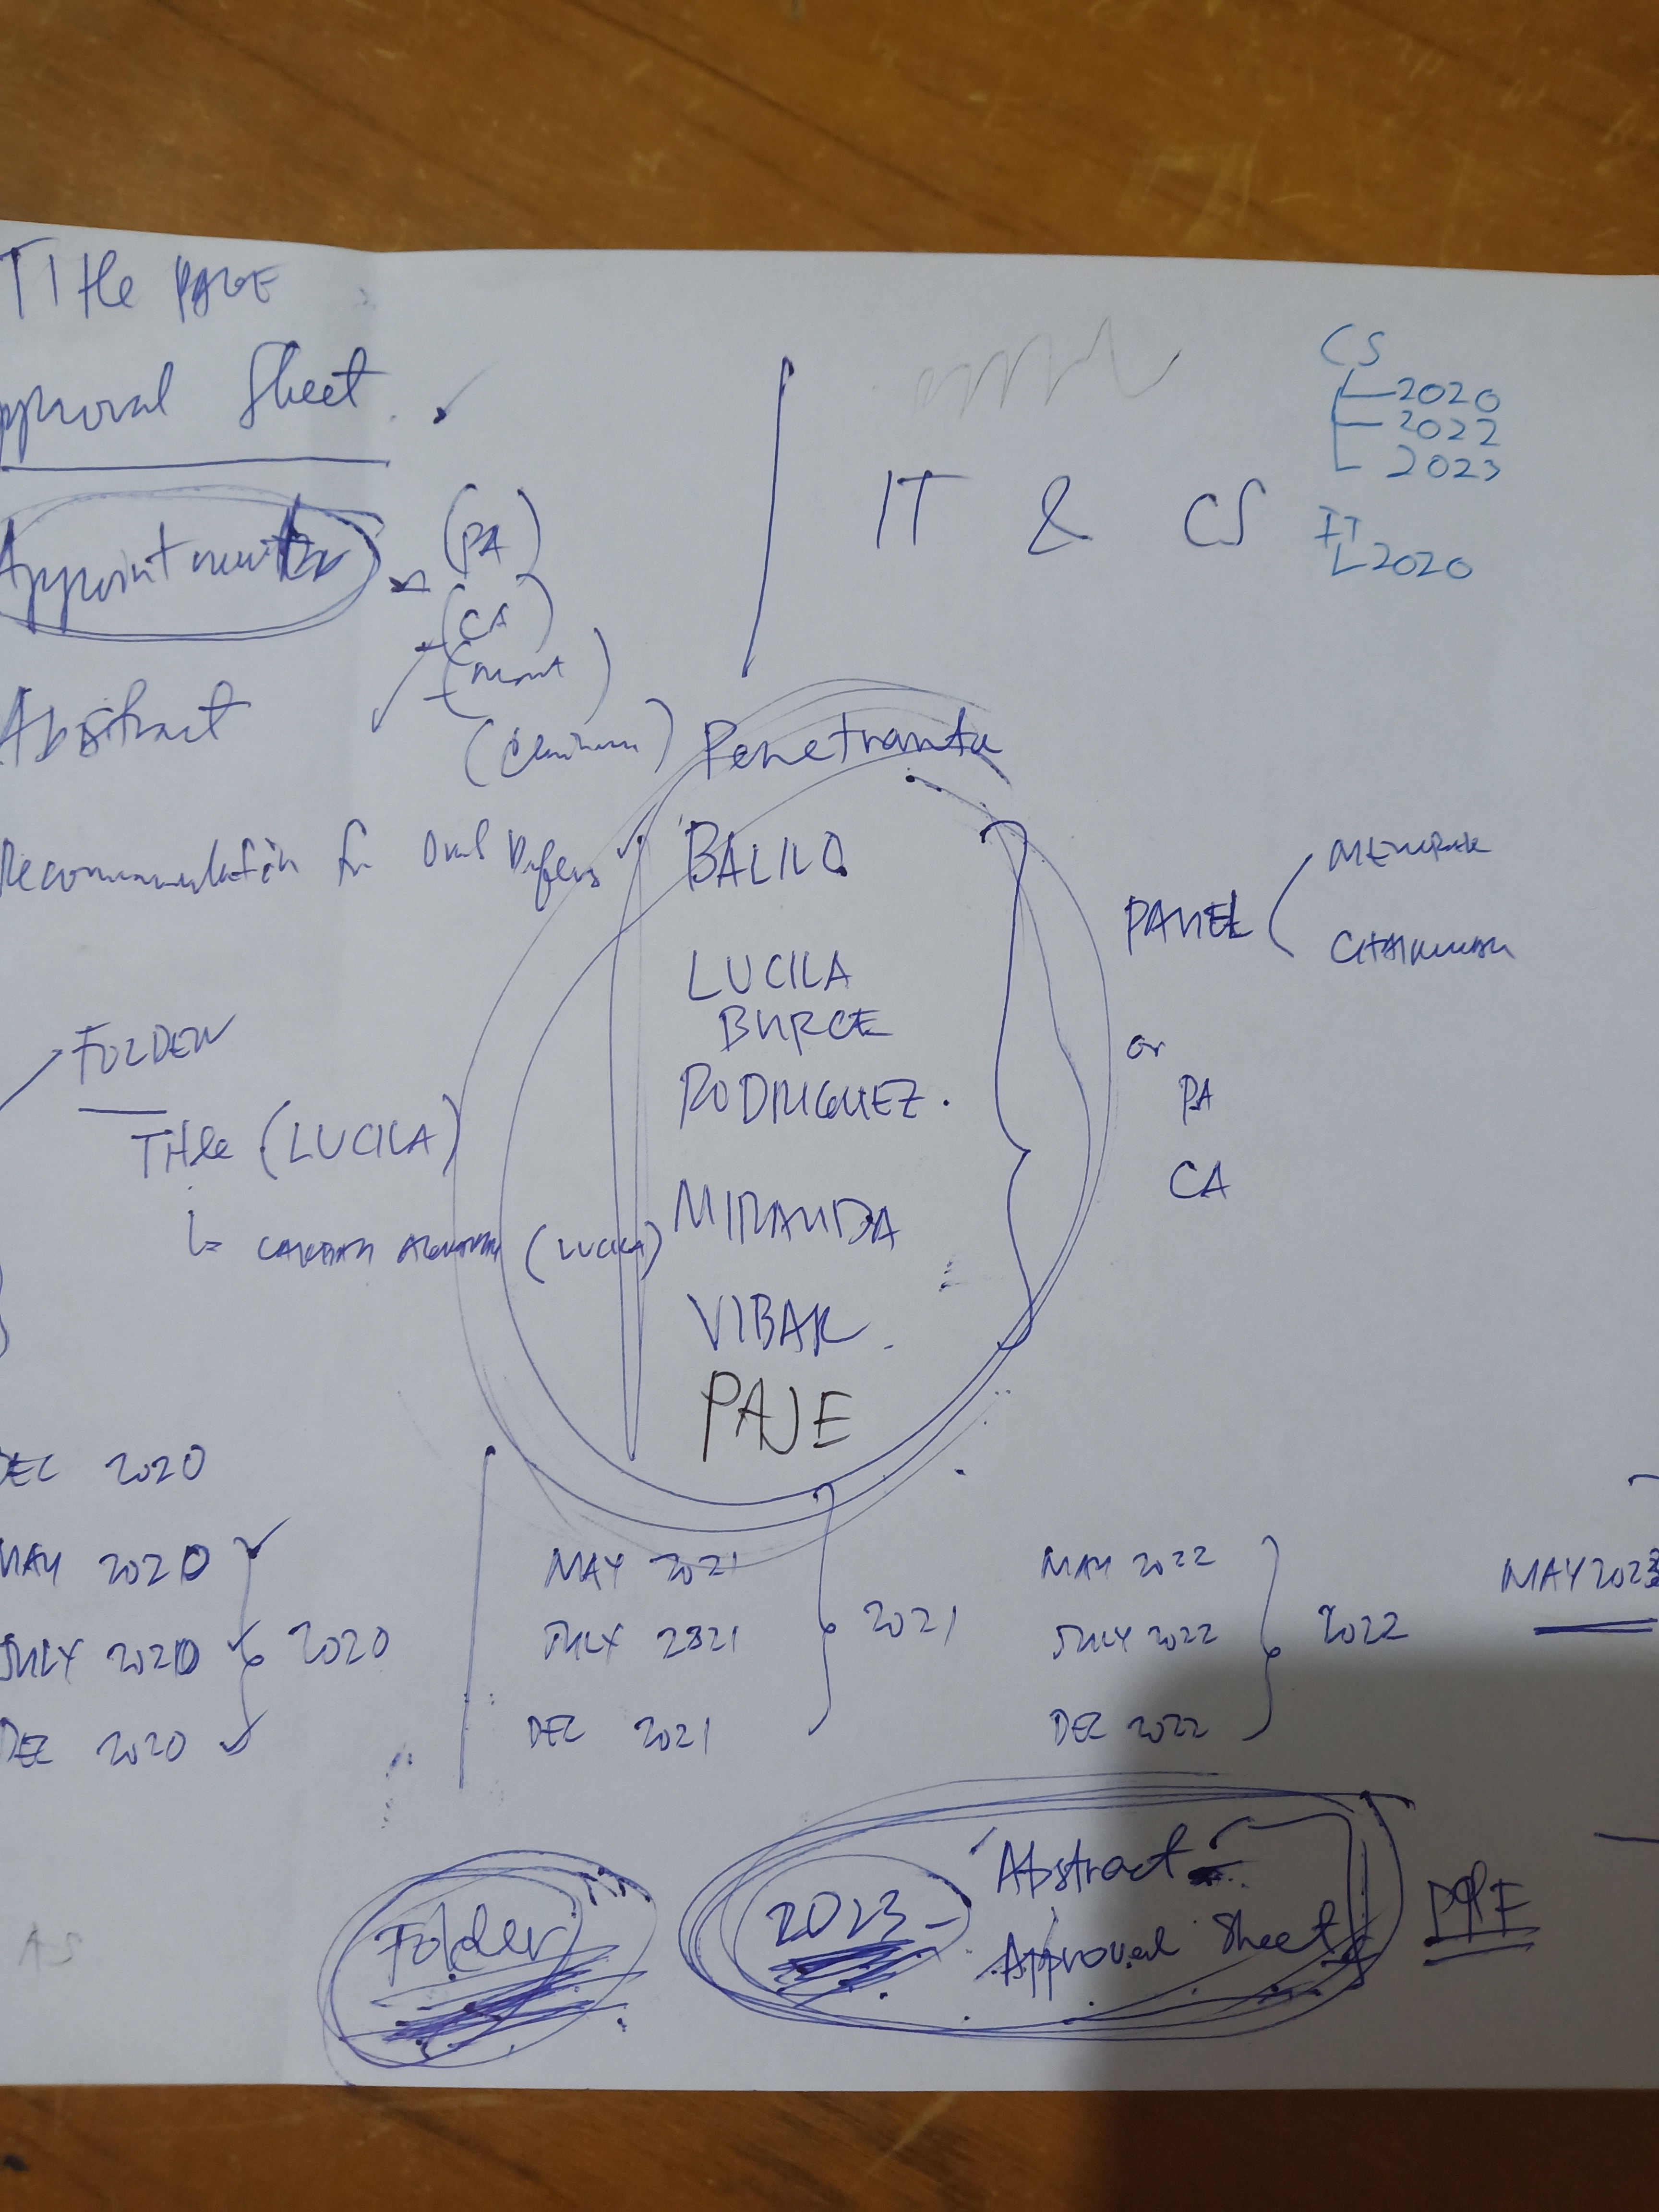 Title PAGE
pproval Sheet
Appointment
(PA)
(CA)
(Chairman)
Abstract
Recommendation for Oral Defens
IT & CS
CS
2020
2022
2023
IT
2020
Penetrante
BALILO
LUCILA
BURCE
RODRIGUEZ.
MIRANDA
VIBAR
PAJE
PANEL
MEMBER
CHAIRMAN
or
PA
CA
FOLDER
Title (LUCILA)
(LUCILA)
DEC 2020
MAY 2020
JULY 2020
DEC 2020
2020
MAY 2021
JULY 2021
DEC 2021
2021
MAY 2022
JULY 2022
DEC 2022
2022
MAY 2023
Folder
2023 -
Abstract
Approval Sheet
AS